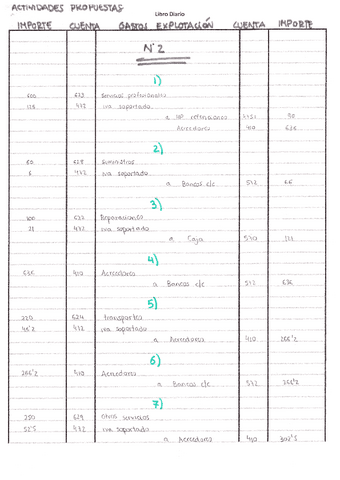 ACTIVIDADES PROPUESTAS
Libro Diario
IMPORTE CUENTA GASTOS EXPLOTACIÓN CUENTA IMPORTE
Nº2
1)
600 623 servicios profesionales
126 472 iva soportado
a HP 4751 90
Acreedores 410 636
2)
60 628 suministros
6 472 iva soportado
a Bancos c/c 572 66
3)
100 622 Reparaciones
21 472 iva soportado
a Caja 570 121
4)
636 410 Acreedores
a Bancos c/c 572 636
5)
220 624 transportes
46'2 472 iva soportado
a Acreedores 410 266'2
6)
266'2 410 Acreedores
a Bancos c/c 572 266'2
7)
250 629 otros servicios
52'5 472 iva soportado
a Acreedores 410 302'5